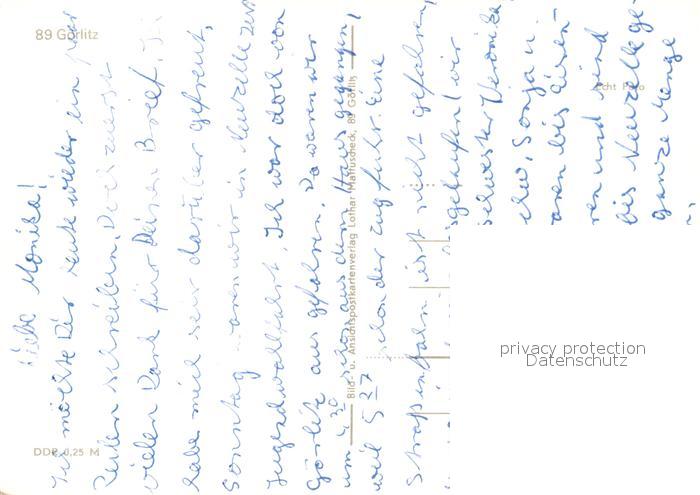 89 Görlitz
Liebe Monika!
Ich möchte Dir heute wieder ein paar
Zeilen schreiben. Doch zuerst
vielen Dank für Deinen Brief. Ich
habe mich sehr darüber gefreut.
Sonntag waren wir in Neuzelle zur
Jugendwallfahrt. Ich war doch von
Görlitz aus gefahren. Da waren wir
um 4 30 schon aus dem Haus gegangen,
weil 5 27 schon der Zug fuhr. Eine
Straßenbahn ist nicht gefahren,
gelaufen! wir
Schwester Veronika,
Sonja u.
waren bis Eisen-
ren und sind
bis Neuzelle ge-
ganze Menge
Bild- u. Ansichtspostkartenverlag Lothar Mattuscheck, 89 Görlitz
Echt Foto
DDR 0,25 M
privacy protection
Datenschutz